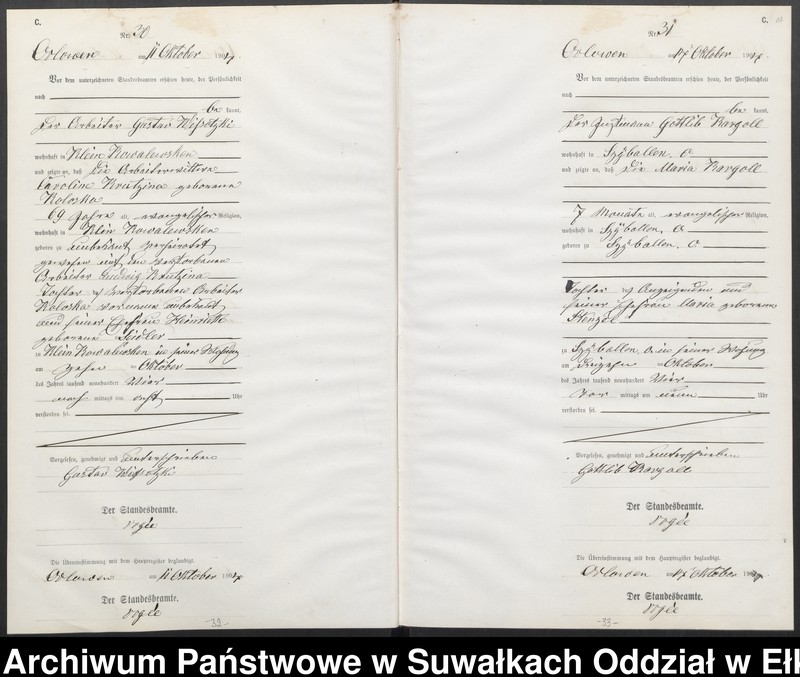 C.
Nr. 30
Orlowen am 11 Oktober 1904
Vor dem unterzeichneten Standesbeamten erschien heute, der Persönlichkeit
nach
be kannt,
der Arbeiter Gustav
wohnhaft in Klein Kowalewsken
und zeigte an, daß die Arbeiterwittwe
Caroline Krutzina geborene
Koloska
69 Jahre alt, evangelischer Religion,
wohnhaft in Klein Kowalewsken
geboren zu unbekannt verheirathet
gewesen mit dem verstorbenen
Arbeiter Ludwig Krutzina
Tochter des verstorbenen Arbeiter
Koloska Vorname unbekannt
und seiner Ehefrau
geborene
zu Klein Kowalewsken in seiner Wohnung
am zehn ten Oktober
des Jahres tausend neunhundert Vier
nach mittags um acht Uhr
verstorben sei.
Vorgelesen, genehmigt und unterschrieben
Gustav
Der Standesbeamte.
Die Übereinstimmung mit dem Hauptregister beglaubigt.
Orlowen am 11 Oktober 1904
Der Standesbeamte.
-32-
C.
Nr. 31
Orlowen am 17 Oktober 1904
Vor dem unterzeichneten Standesbeamten erschien heute, der Persönlichkeit
nach
be kannt,
der Gottlib Kargoll
wohnhaft in Szyballen. O
und zeigte an, daß die Maria Kargoll
7 Monate alt, evangelischer Religion,
wohnhaft in Szyballen. O
geboren zu Szyballen. O
Tochter des Anzeigenden und
seiner Ehefrau Maria geborene
Stenzel
zu Szyballen. O in seiner Wohnung
am ten Oktober
des Jahres tausend neunhundert Vier
Vor mittags um neun Uhr
verstorben sei.
Vorgelesen, genehmigt und unterschrieben
Gottlib Kargoll
Der Standesbeamte.
Die Übereinstimmung mit dem Hauptregister beglaubigt.
Orlowen am 17 Oktober 1904
Der Standesbeamte.
-33-
Archiwum Państwowe w Suwałkach Oddział w Ełk